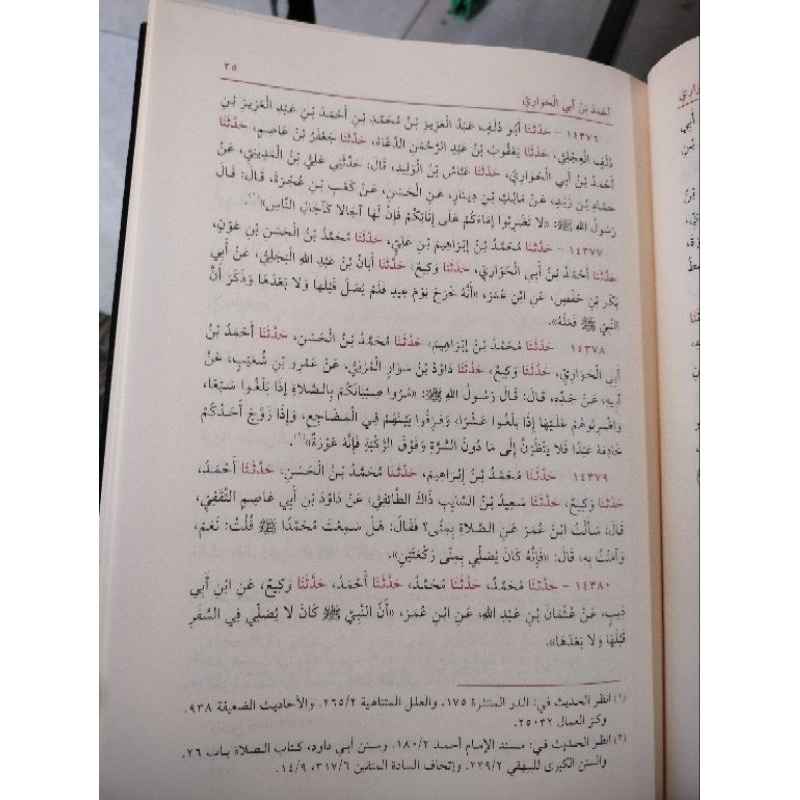 أحمد بن أبي الحواري ٢٥
١٤٣٧٦ - حَدَّثَنَا أَبُو دُلَفٍ عَبْدُ الْعَزِيزِ بْنُ مُحَمَّدِ بْنِ أَحْمَدَ بْنِ عَبْدِ الْعَزِيزِ بْنِ
دُلَفَ الْعِجْلِيُّ، حَدَّثَنَا يَعْقُوبُ بْنُ عَبْدِ الرَّحْمَنِ الدَّعَّاءُ، حَدَّثَنَا جَعْفَرُ بْنُ عَاصِمٍ، حَدَّثَنَا
أَحْمَدُ بْنُ أَبِي الْحَوَارِيِّ، حَدَّثَنَا عَبَّاسُ بْنُ الْوَلِيدِ، قَالَ: حَدَّثَنِي عَلِيُّ بْنُ الْمَدِينِيِّ، عَنْ
حَمَّادِ بْنِ زَيْدٍ، عَنْ مَالِكِ بْنِ دِينَارٍ، عَنِ الْحَسَنِ، عَنْ كَعْبِ بْنِ عُجْرَةَ، قَالَ: قَالَ
رَسُولُ اللهِ ﷺ: «لَا تَضْرِبُوا إِمَاءَكُمْ عَلَى إِنَائِكُمْ فَإِنَّ لَهَا آجَالًا كَآجَالِ النَّاسِ»(١).
١٤٣٧٧ - حَدَّثَنَا مُحَمَّدُ بْنُ إِبْرَاهِيمَ بْنِ عَلِيٍّ، حَدَّثَنَا مُحَمَّدُ بْنُ الْحَسَنِ بْنِ عَوْنٍ،
حَدَّثَنَا أَحْمَدُ بْنُ أَبِي الْحَوَارِيِّ، حَدَّثَنَا وَكِيعٌ، حَدَّثَنَا أَبَانُ بْنُ عَبْدِ اللهِ الْبَجَلِيُّ، عَنْ أَبِي
بَكْرِ بْنِ حَفْصٍ، عَنِ ابْنِ عُمَرَ، «أَنَّهُ خَرَجَ يَوْمَ عِيدٍ فَلَمْ يُصَلِّ قَبْلَهَا وَلَا بَعْدَهَا وَذَكَرَ أَنَّ
النَّبِيَّ ﷺ فَعَلَهُ».
١٤٣٧٨ - حَدَّثَنَا مُحَمَّدُ بْنُ إِبْرَاهِيمَ، حَدَّثَنَا مُحَمَّدُ بْنُ الْحَسَنِ، حَدَّثَنَا أَحْمَدُ بْنُ
أَبِي الْحَوَارِيِّ، حَدَّثَنَا وَكِيعٌ، حَدَّثَنَا دَاوُدُ بْنُ سَوَّارٍ الْمُزَنِيُّ، عَنْ عَمْرِو بْنِ شُعَيْبٍ، عَنْ
أَبِيهِ، عَنْ جَدِّهِ، قَالَ: قَالَ رَسُولُ اللهِ ﷺ: «مُرُوا صِبْيَانَكُمْ بِالصَّلَاةِ إِذَا بَلَغُوا سَبْعًا،
وَاضْرِبُوهُمْ عَلَيْهَا إِذَا بَلَغُوا عَشْرًا، وَفَرِّقُوا بَيْنَهُمْ فِي الْمَضَاجِعِ، وَإِذَا زَوَّجَ أَحَدُكُمْ
خَادِمَهُ عَبْدًا فَلَا يَنْظُرَنَّ إِلَى مَا دُونَ السُّرَّةِ وَفَوْقَ الرُّكْبَةِ فَإِنَّهُ عَوْرَةٌ»(٢).
١٤٣٧٩ - حَدَّثَنَا مُحَمَّدُ بْنُ إِبْرَاهِيمَ، حَدَّثَنَا مُحَمَّدُ بْنُ الْحَسَنِ، حَدَّثَنَا أَحْمَدُ،
حَدَّثَنَا وَكِيعٌ، حَدَّثَنَا سَعِيدُ بْنُ السَّائِبِ ذَاكَ الطَّائِفِيُّ، عَنْ دَاوُدَ بْنِ أَبِي عَاصِمٍ الثَّقَفِيِّ،
قَالَ، سَأَلْتُ ابْنَ عُمَرَ عَنِ الصَّلَاةِ بِمِنًى؟ فَقَالَ: هَلْ سَمِعْتَ مُحَمَّدًا ﷺ قُلْتُ: نَعَمْ،
وَآمَنْتُ بِهِ، قَالَ: «فَإِنَّهُ كَانَ يُصَلِّي بِمِنًى رَكْعَتَيْنِ».
١٤٣٨٠ - حَدَّثَنَا مُحَمَّدٌ، حَدَّثَنَا مُحَمَّدٌ، حَدَّثَنَا أَحْمَدُ، حَدَّثَنَا وَكِيعٌ، عَنِ ابْنِ أَبِي
ذِيبٍ، عَنْ عُثْمَانَ بْنِ عَبْدِ اللهِ، عَنِ ابْنِ عُمَرَ، «أَنَّ النَّبِيَّ ﷺ كَانَ لَا يُصَلِّي فِي السَّفَرِ
قَبْلَهَا وَلَا بَعْدَهَا».
(١) انظر الحديث في: الدر المنتثرة ١٧٥. والعلل المتناهية ٢/٢٦٥. والأحاديث الضعيفة ٩٣٨.
وكنز العمال ٢٥٠٣٢.
(٢) انظر الحديث في: مسند الإمام أحمد ٢/١٨٠. وسنن أبي داود، كتاب الصلاة باب ٢٦.
والسنن الكبرى للبيهقي ٢/٢٢٩. وإتحاف السادة المتقين ٦/٣١٧، ٩/١٤.